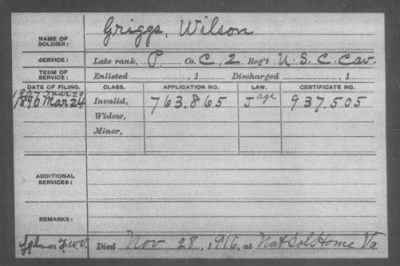 NAME OF SOLDIER: Griggs, Wilson
SERVICE: Late rank, P. Co. C, 2 Reg't U.S.C. Cav.
TERM OF SERVICE: Enlisted , 1 Discharged , 1
DATE OF FILING. CLASS. APPLICATION NO. LAW. CERTIFICATE NO.
1890 Mar 24 Invalid, 763.865 J age 937.505
Widow,
Minor,
ADDITIONAL SERVICES:
REMARKS:
Died Nov 28, 1916, at Nat Sol Home Va